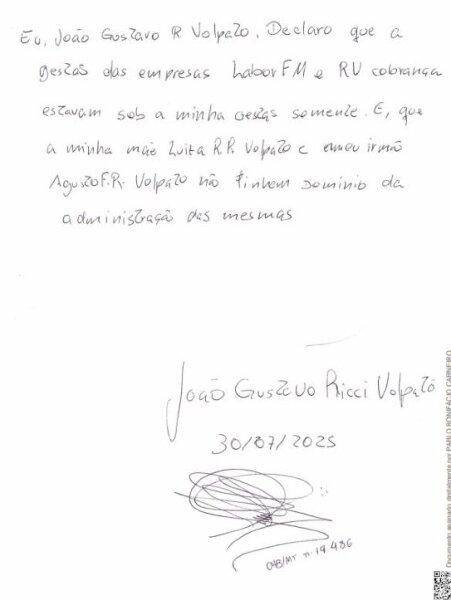 Eu, João Gustavo R Volpato. Declaro que a
gestão das empresas Labor FM e RV cobrança
estavam sob a minha gestão somente. E, que
a minha mãe Luiza R.R. Volpato e e meu irmão
Agusto F.R. Volpato não tinham Dominio da
administração das mesmas
João Gustavo Ricci Volpato
30/07/2025
OAB/MT n. 19.436
Documento assinado digitalmente por PABLO BONIFACIO CARNEIRO